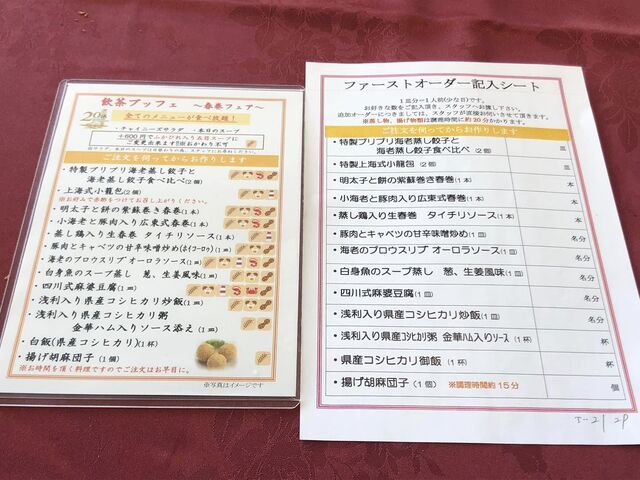 飲茶ブッフェ ～春巻フェア～
全てのメニューが食べ放題！
・チャイニーズサラダ ・本日のスープ
＋600円でふかひれ入り五目スープに
ご変更出来ます※おかわり不可
ご注文を伺ってからお作りします
・特製プリプリ海老蒸し餃子と
海老蒸し餃子食べ比べ(2個)
・上海式小籠包(2個)
※お好みで赤酢をつけてお召し上がりください。
・明太子と餅の紫蘇巻き春巻(1本)
・小海老と豚肉入り広東式春巻(1本)
・蒸し鶏入り生春巻 タイチリソース(1本)
・豚肉とキャベツの甘辛味噌炒め(ホイコーロウ)(1皿)
・海老のブロウスリブ オーロラソース(1皿)
・白身魚のスープ蒸し 葱、生姜風味(1皿)
・四川式麻婆豆腐(1皿)
・浅利入り県産コシヒカリ炒飯(1皿)
・浅利入り県産コシヒカリ粥
金華ハム入りソース添え(1杯)
・白飯(県産コシヒカリ)(1杯)
・揚げ胡麻団子(1個)
※お時間を頂く料理ですのでご注文はお早目に。
※写真はイメージです
ファーストオーダー記入シート
1皿分＝1人前(少な目)です。
お好きな数をご記入頂き、スタッフへお渡し下さい。
追加オーダーにつきましては、スタッフが直接お伺いさせて頂きます。
※蒸し物、揚げ物類は調理時間に約20分かかります。
ご注文を伺ってからお作りします
・特製プリプリ海老蒸し餃子と
海老蒸し餃子食べ比べ(2個) 皿
・特製上海式小籠包(2個) 皿
・明太子と餅の紫蘇巻き春巻(1本) 本
・小海老と豚肉入り広東式春巻(1本) 本
・蒸し鶏入り生春巻 タイチリソース(1本) 本
・豚肉とキャベツの甘辛味噌炒め(1皿) 名分
・海老のブロウスリブ オーロラソース(1皿) 名分
・白身魚のスープ蒸し 葱、生姜風味(1皿) 名分
・四川式麻婆豆腐(1皿) 名分
・浅利入り県産コシヒカリ炒飯(1皿) 名分
・浅利入り県産コシヒカリ粥 金華ハム入りソース(1杯) 杯
・県産コシヒカリ御飯(1杯) 杯
・揚げ胡麻団子(1個) ※調理時間約15分 個
T-21 2P